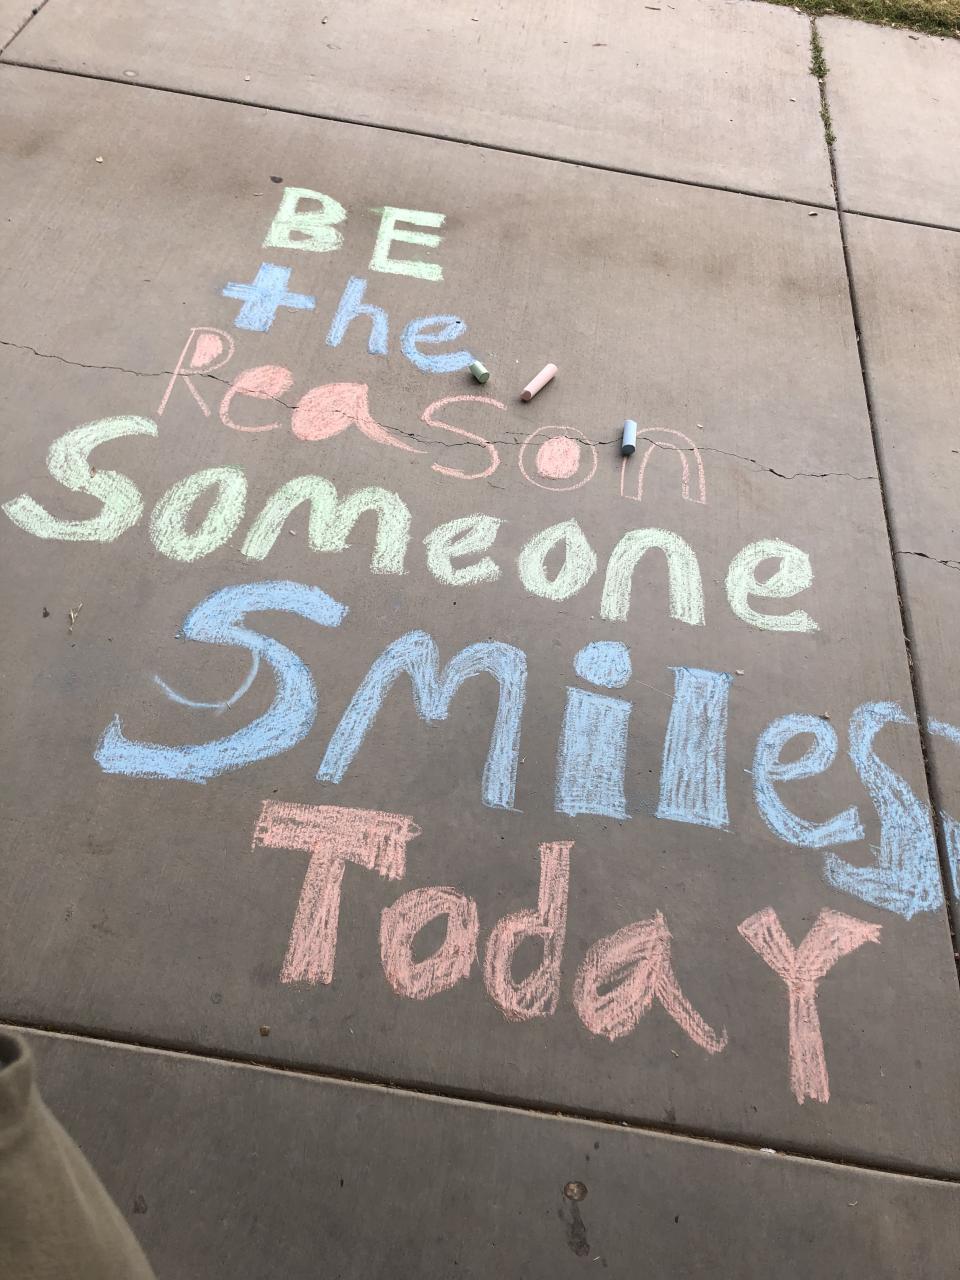 BE
the
Reason
Someone
Smiles
Today